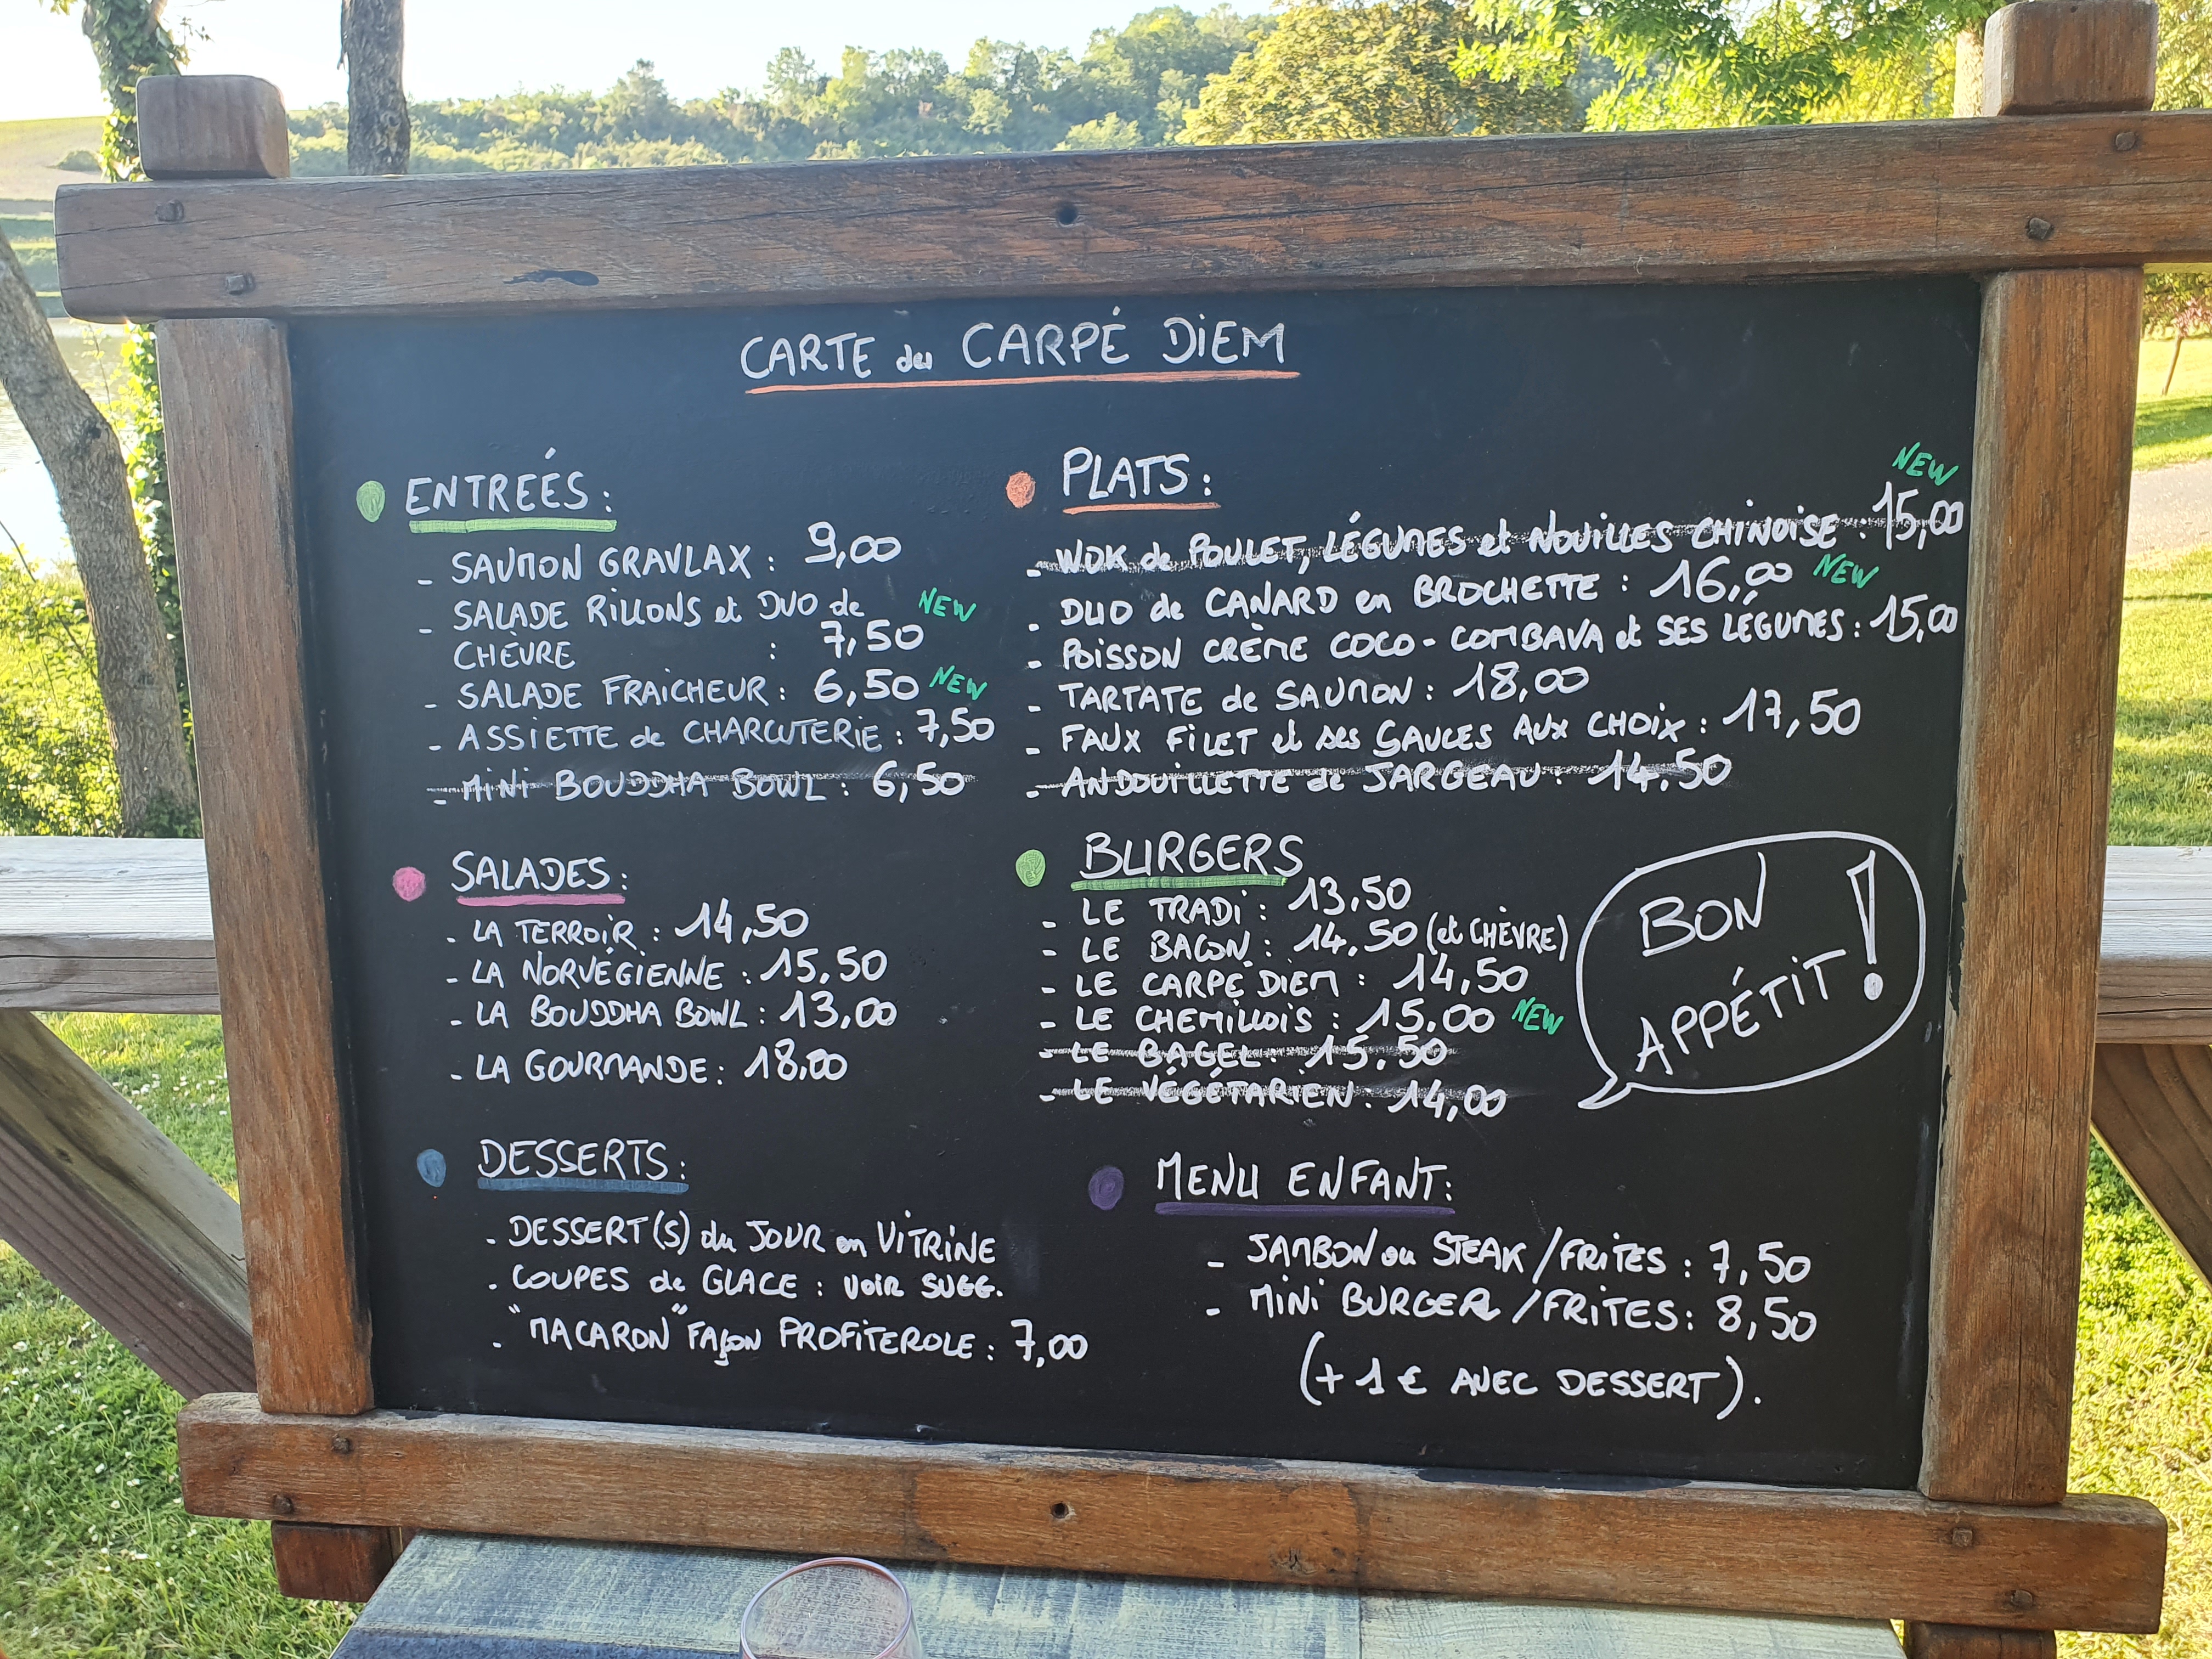 CARTE du CARPÉ DiEM
ENTREÉS :
- SAUMON GRAVLAX : 9,00
- SALADE RiLLONS et DUO de NEW
CHÈVRE : 7,50
- SALADE FRAiCHEUR : 6,50 NEW
- ASSiETTE de CHARCUTERiE : 7,50
- MiNi BOUDDHA BOWL : 6,50
PLATS :
NEW
- WOK de POULET, LÉGUMES et NOUiLLES CHiNOiSE : 15,00
- DUO de CANARD en BROCHETTE : 16,00 NEW
- POiSSON CRÈME COCO - COMBAVA et SES LÉGUMES : 15,00
- TARTATE de SAUMON : 18,00
- FAUX FiLET et ses SAUCES AUX CHOiX : 17,50
- ANDOUiLLETTE de JARGEAU : 14,50
SALADES :
- LA TERROiR : 14,50
- LA NORVÉGiENNE : 15,50
- LA BOUDDHA BOWL : 13,00
- LA GOURMANDE : 18,00
BURGERS
- LE TRADi : 13,50
- LE BACON : 14,50 (et CHÈVRE)
- LE CARPÉ DiEM : 14,50
- LE CHEMiLLOiS : 15,00 NEW
- LE BAGEL : 15,50
- LE VÉGÉTARiEN : 14,00
BON
APPÉTiT !
DESSERTS :
- DESSERT(S) du JOUR en ViTRiNE
- COUPES de GLACE : VOiR SUGG.
- "MACARON" FAçon PROFiTEROLE : 7,00
MENU ENFANT :
- JAMBON ou STEAK / FRiTES : 7,50
- MiNi BURGER / FRiTES : 8,50
(+ 1 € AVEC DESSERT).